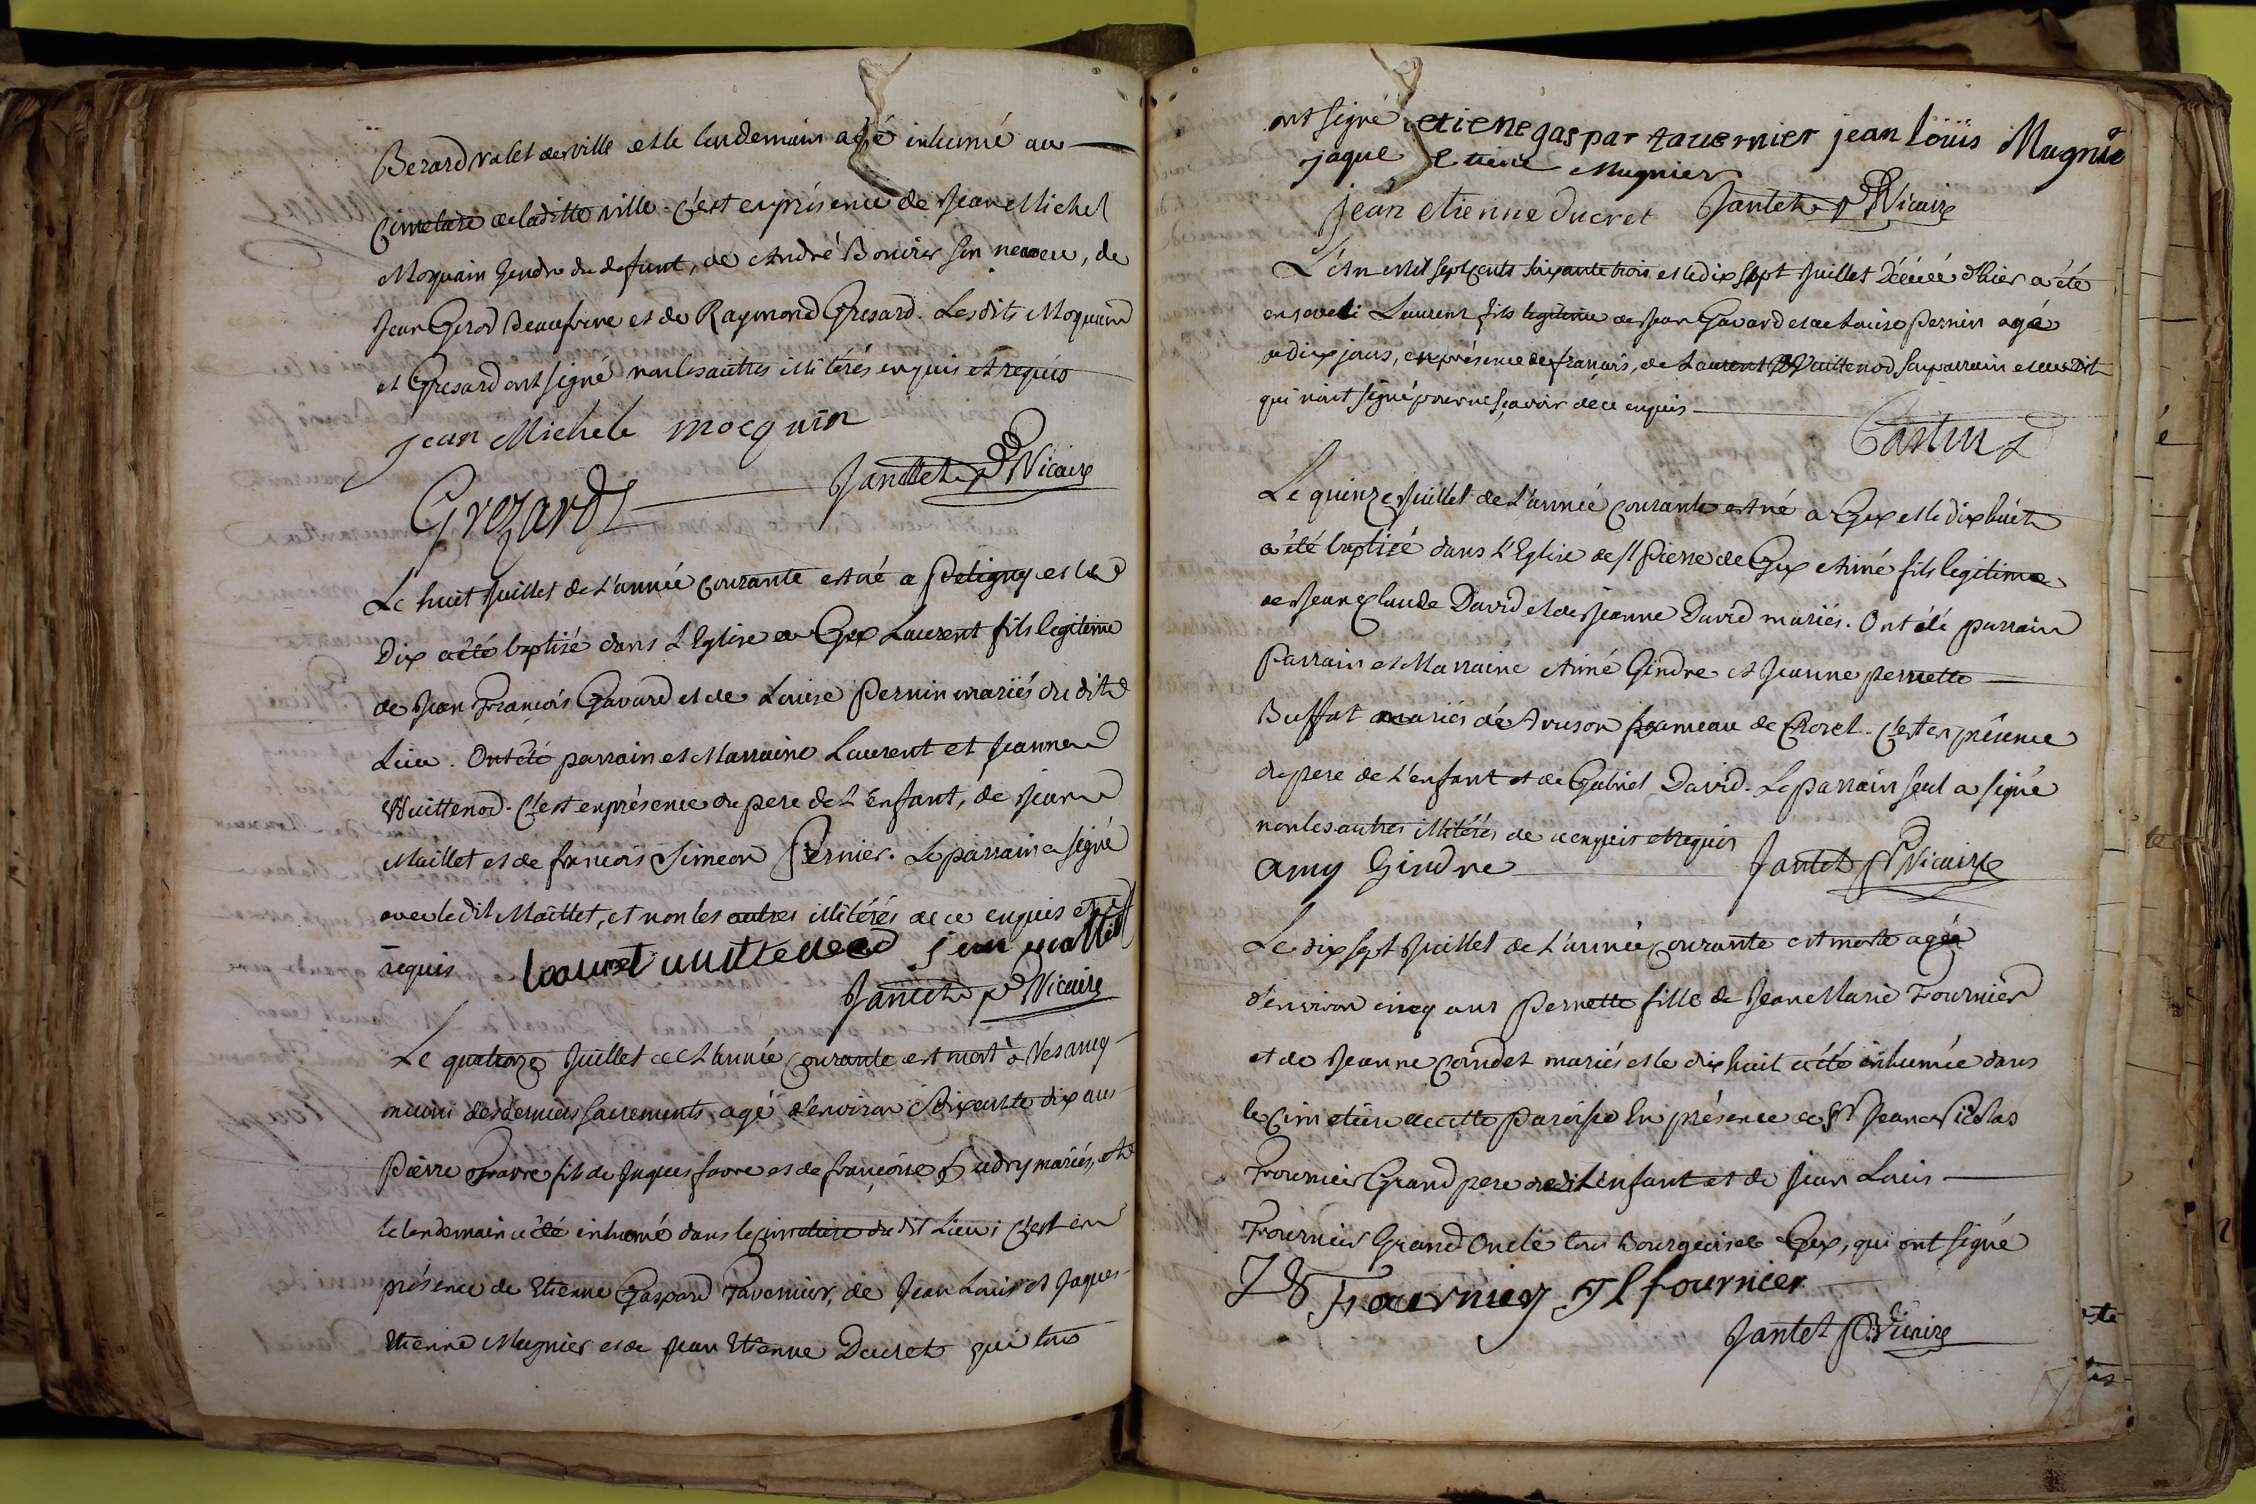 Berard valet de ville et le lendemain a été inhumé au
Cimetiere de laditte ville. C'est en présence de Jean Michel
Moquain Gendre du defunt, de André Bouvier son neveu, de
Jean Girod Beaufrere et de Raymond Gresard. Lesdits Moquain
et Gresard ont signé non les autres illitérés enquis et requis
jean Michele mocquin
Grezard Jantet P. Vicaire
Le huit Juillet de L'année courante est né a Petigny et le
Dix a été baptisé dans L'Eglise de Gex Laurent fils legitime
de Jean François Gavard et de Louise Pernin mariés du dit
Lieu. Ont été parrain et Marraine Laurent et Jeanne
Vuittenod. C'est en présence du pere de L'Enfant, de Jean
Maillet et de francois Simeon Pernier. Le parrain a signé
avec le dit Maillet, et non les autres illitérés de ce enquis et
requis
Jantet P. Vicaire
Le quatorze Juillet de L'année courante est mort à Vesancy
muni des derniers sacrements, agé d'environ Soixante dix ans
Pierre favre fils de Jaques favre et de françoise Hudry mariés, et
le lendemain a été inhumé dans le Cimetiere du dit Lieu; C'est en
présence de Etienne Gaspard Tavernier, de Jean Louis et Jaques
Etienne Mugnier et de Jean Etienne Ducret qui tous
ont signé etiene gaspar tavernier jean louis Mugnie
jaque Etiene Mugnier
jean etienne ducret Jantet P. Vicaire
L'An Mil Sept Cents soixante trois et le dix sept Juillet Décédé d'hier a été
enseveli Laurent fils legitime de Jean Gavard et de Louise Pernin agé
de dix jours, en présence de françois, de Laurent Vuittenod son parrain et
qui n'ont signé pour ne sçavoir de ce enquis
Castin
Le quinze Juillet de L'année courante est né a Gex et le dix huit
a été baptisé dans L'Eglise de St Pierre de Gex Aimé fils legitime
de Jean Claude David et de Jeanne David mariés. Ont été parrain
Parrain et Marraine Aimé Gindre et Jeanne pernette
Buffat mariés de Avuson hameau de Crozet. C'est en présence
du pere de L'enfant et de Gabriel David. Le parrain seul a signé
non les autres illitérés de ce enquis et requis
amy Gindre Jantet P. Vicaire
Le dix sept Juillet de L'année courante est morte agée
d'environ cinq ans Pernette fille de Jean Marie Fournier
et de Jeanne Caudet mariés et le dix huit a été inhumée dans
le Cimetiere de cette paroisse En présence de Sr Jean Nicolas
Fournier Grand pere de dit L'enfant et de Jean Louis
Fournier Grand Oncle tous bourgeois de Gex, qui ont signé
Fournier JL fournier
Jantet P. Vicaire